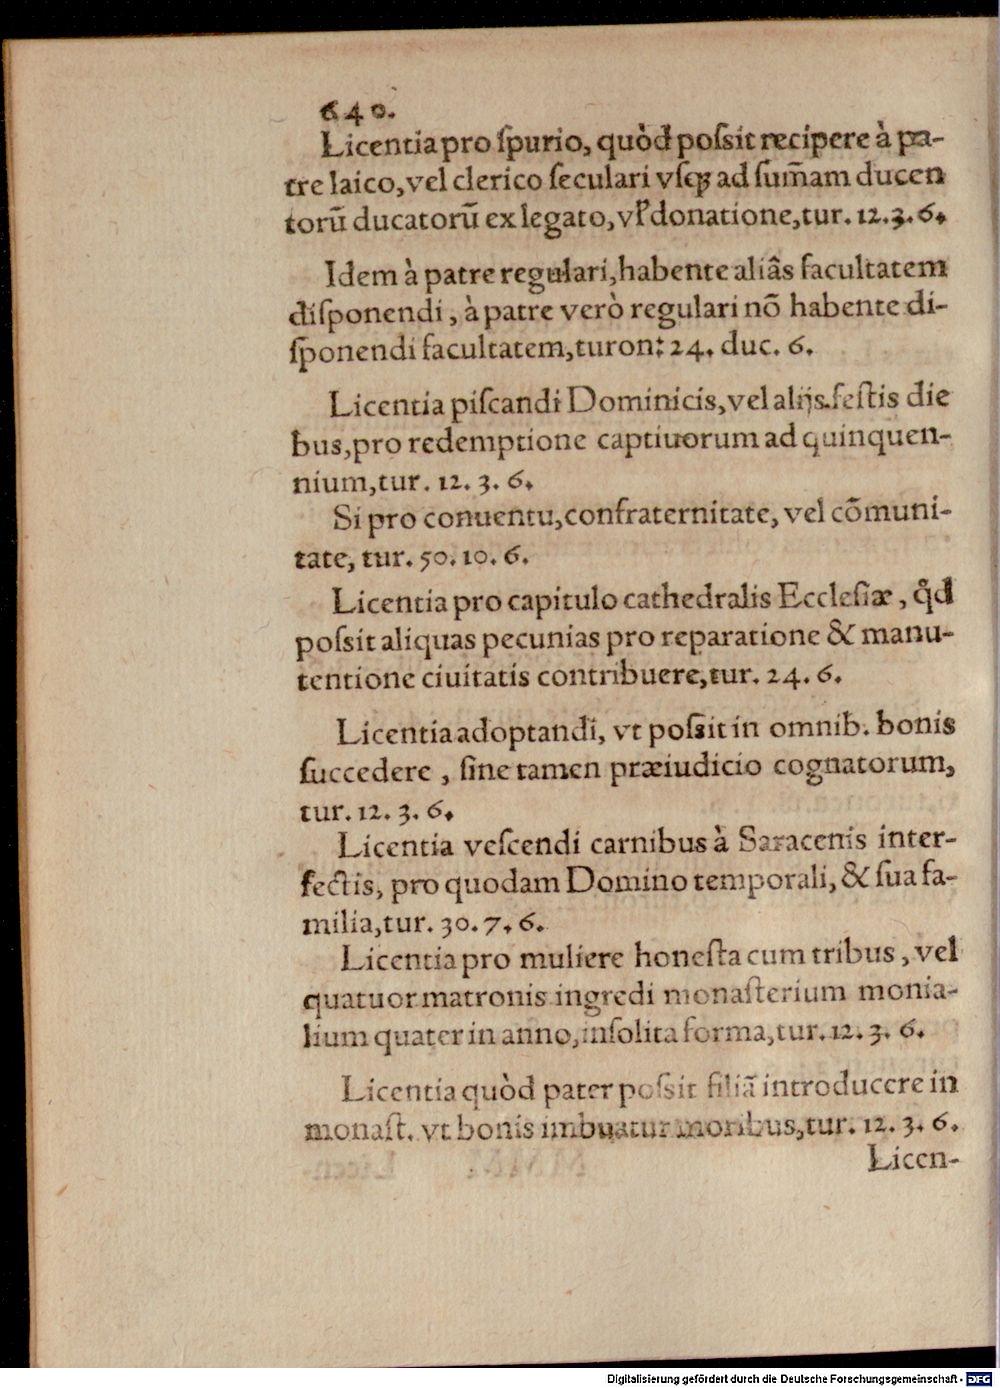 640.
Licentia pro ſpurio, quòd poſsit recipere à pa-
tre laico, vel clerico ſeculari vſq; ad ſum̃am ducen
torũ ducatorũ ex legato, vľ donatione, tur. 12. 3. 6.
Idem à patre regulari, habente aliâs facultatem
diſponendi, à patre verò regulari nõ habente di-
ſponendi facultatem, turon: 24. duc. 6.
Licentia piſcandi Dominicis, vel alijs feſtis die
bus, pro redemptione captiuorum ad quinquen-
nium, tur. 12. 3. 6.
Si pro conuentu, confraternitate, vel cõmuni-
tate, tur. 50. 10. 6.
Licentia pro capitulo cathedralis Eccleſiæ, qd̉
poſsit aliquas pecunias pro reparatione & manu-
tentione ciuitatis contribuere, tur. 24. 6.
Licentia adoptandi, vt poſsit in omnib. bonis
ſuccedere, ſine tamen præiudicio cognatorum,
tur. 12. 3. 6.
Licentia veſcendi carnibus à Saracenis inter-
fectis, pro quodam Domino temporali, & ſua fa-
milia, tur. 30. 7. 6.
Licentia pro muliere honeſta cum tribus, vel
quatuor matronis ingredi monaſterium monia-
lium quater in anno, in ſolita forma, tur. 12. 3. 6.
Licentia quòd pater poſsit filiã introducere in
monaſt. vt bonis imbuatur moribus, tur. 12. 3. 6.
Licen-
Digitalisierung gefördert durch die Deutsche Forschungsgemeinschaft - DFG